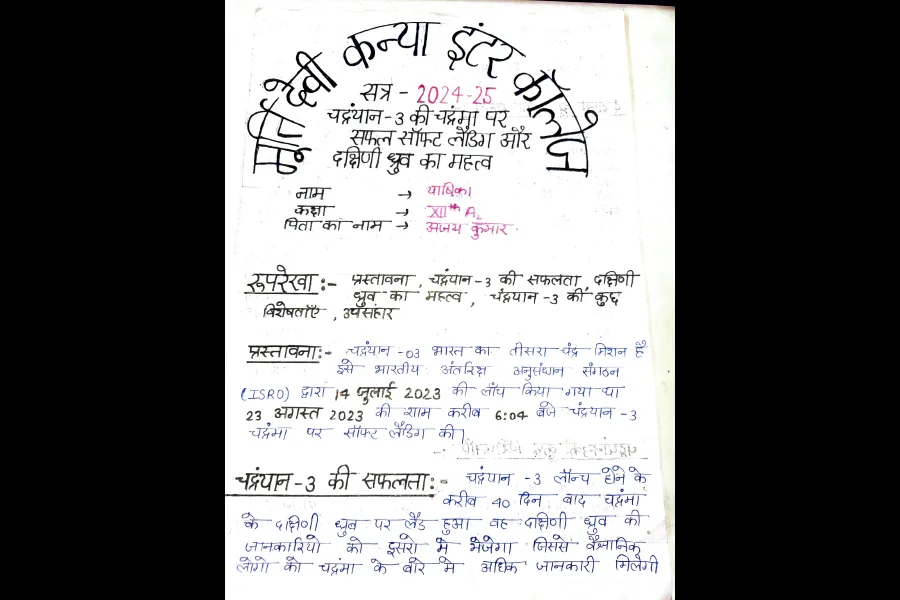 दुर्गा देवी कन्या इंटर कॉलेज
सत्र - 2024-25
चद्रंयान-3 की चद्रंमा पर
सफल सॉफ्ट लैंडिग और
दक्षिणी ध्रुव का महत्व
नाम → याषिका
कक्षा → XIIth A2
पिता का नाम → अजय कुमार
रूपरेखा :- प्रस्तावना, चद्रंयान-3 की सफलता, दक्षिणी
ध्रुव का महत्व, चंद्रयान -3 की कुछ
विशेषताएँ, उपसंहार
प्रस्तावना:- चद्रंयान -03 भारत का तीसरा चंद्र मिशन है
इसे भारतीय अंतरिक्ष अनुसंधान संगठन
(ISRO) द्वारा 14 जुलाई 2023 को लॉच किया गया था
23 अगस्त 2023 की शाम करीब 6:04 बजे चंद्रयान -3
चद्रंमा पर सॉफ्ट लैंडिग की।
चद्रंयान-3 की सफलता:- चद्रंयान -3 लॉन्च होने के
करीब 40 दिन बाद चद्रंमा
के दक्षिणी ध्रुव पर लैंड हुआ वह दक्षिणी ध्रुव की
जानकारियो को इसरो मे भेजेगा जिससे वैज्ञानिक
लोगो को चद्रंमा के बारे मे अधिक जानकारी मिलेगी